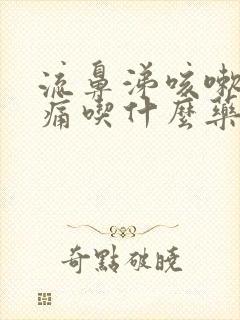 流鼻涕咳嗽
痛喫什麼藥
奇點破曉